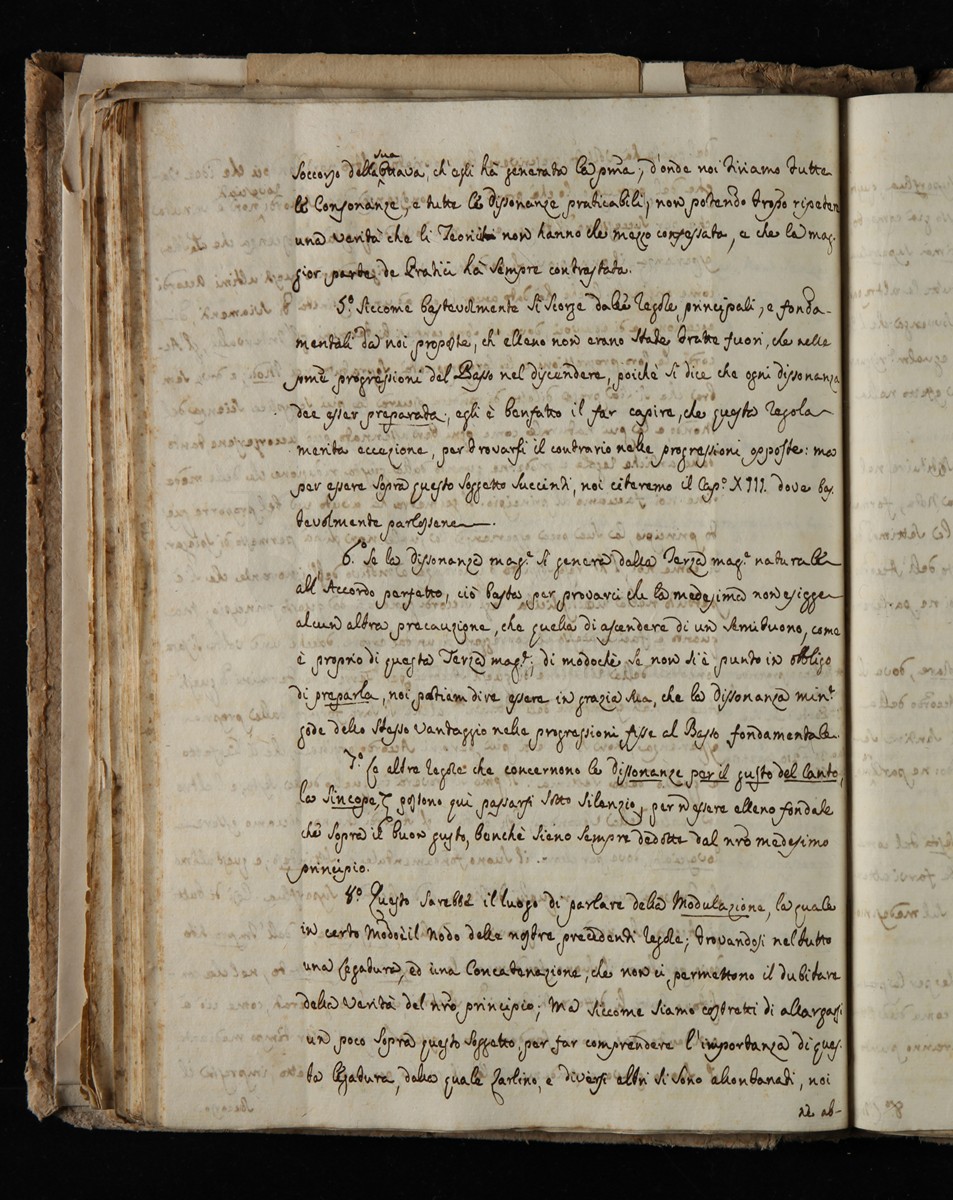 sua
soccorso della ottava; ch'egli hà generata la pma, d'onde noi tiriamo tutte
le Consonanze, e tutte le Dissonanze praticabili; non potendo troppo ripetere
una verità che li Teorici non hanno che mezzo confessata, e che la mag-
gior parte de Pratici hà sempre contrastata.
5.º Siccome bastevolmente si scorge dalle regole principali, e fonda-
mentali da noi proposte, ch'elleno non erano state tratte fuori, che nelle
pme progressioni del Basso nel discendere, poichè si dice che ogni dissonanza
dee esser preparata, egli è benfatto il far capire, che questa regola
merita eccezione, per trovarsi il contrario nelle progressioni opposte: ma
per essere sopra questo soggetto succinti, noi citeremo il Cap.º XIII. dove bas-
tevolmente parlossene.
6.º Se la dissonanza mag.e si genera dalla Terza mag.e naturale
all'Accordo perfetto, ciò basta per provarci che la medesima non esigge
alcun altra precauzione, che quella di ascendere di un semituono, come
è proprio di questa Terza mag.e; di modochè se non si è punto in obbligo
di preparla, noi potiam dire essere in grazia sua, che la dissonanza min.e
gode dello stesso vantaggio nelle progressioni fisse al Basso fondamentale.
7.º Le altre regole che concernono le dissonanze per il gusto del Canto,
la Sincope, & possono quì passarsi sotto silenzio, per ñ essere elleno fondate
che sopra il buon gusto, benchè sieno sempre dedotte dal nrõ medesimo
principio.
8.º Questo sarebbe il luogo di parlare della Modulazione, la quale
in certo modo è il nodo delle nostre precedenti regole; trovandosi nel tutto
una legatura, ed una Concatenazione, che non ci permettono il dubitare
della verità del nrõ principio; Ma siccome siamo costretti di allargarsi
un poco sopra questo soggetto, per far comprendere l'importanza di ques-
ta legatura, dalla quale Zarlino, e diversi altri si sono allontanati, noi
ne ab-